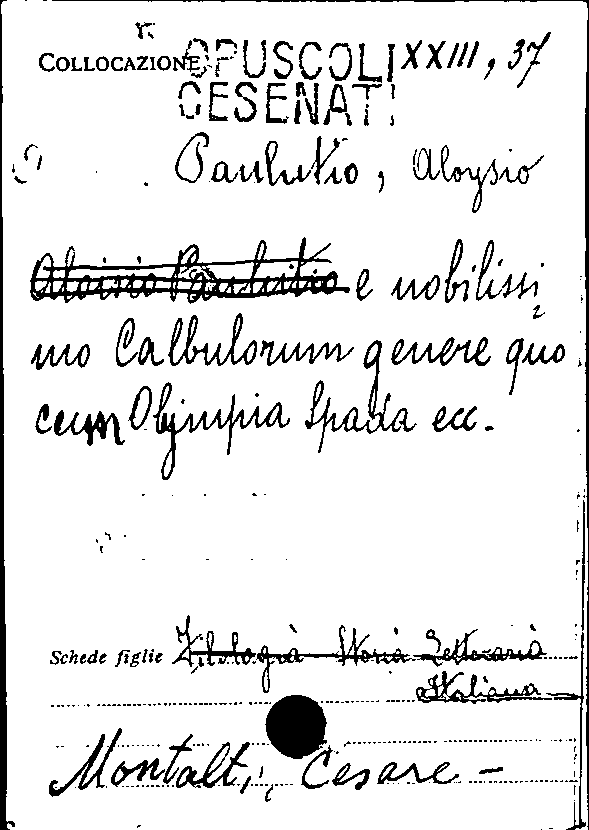 COLLOCAZIONE OPUSCOLI XXIII, 37
CESENATI
Paulutio, Aloysio
Aloisio Paulutio e nobilissi
mo Calbulorum genere quo
cum Olympia Spada ecc.
Schede figlie Filologia Storia Letteraria
Italiana
Montalti, Cesare -